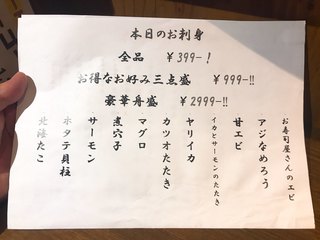 本日のお刺身
全品 ￥399-!
お得なお好み三点盛 ￥999-!!
豪華舟盛 ￥2999-!!
お寿司屋さんのエビ
アジなめろう
甘エビ
イカとサーモンのたたき
ヤリイカ
カツオたたき
マグロ
煮穴子
サーモン
ホタテ貝柱
北海たこ